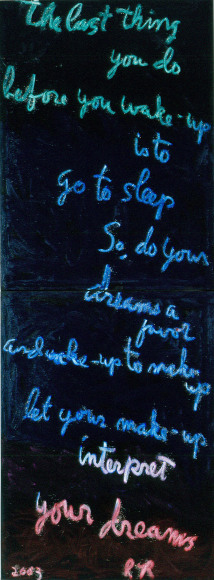 the last thing
you do
before you wake-up
is to
go to sleep
So, do your
dreams a
favor
and wake-up to make-
up
let your make-up
interpret
your dreams
2003 RR